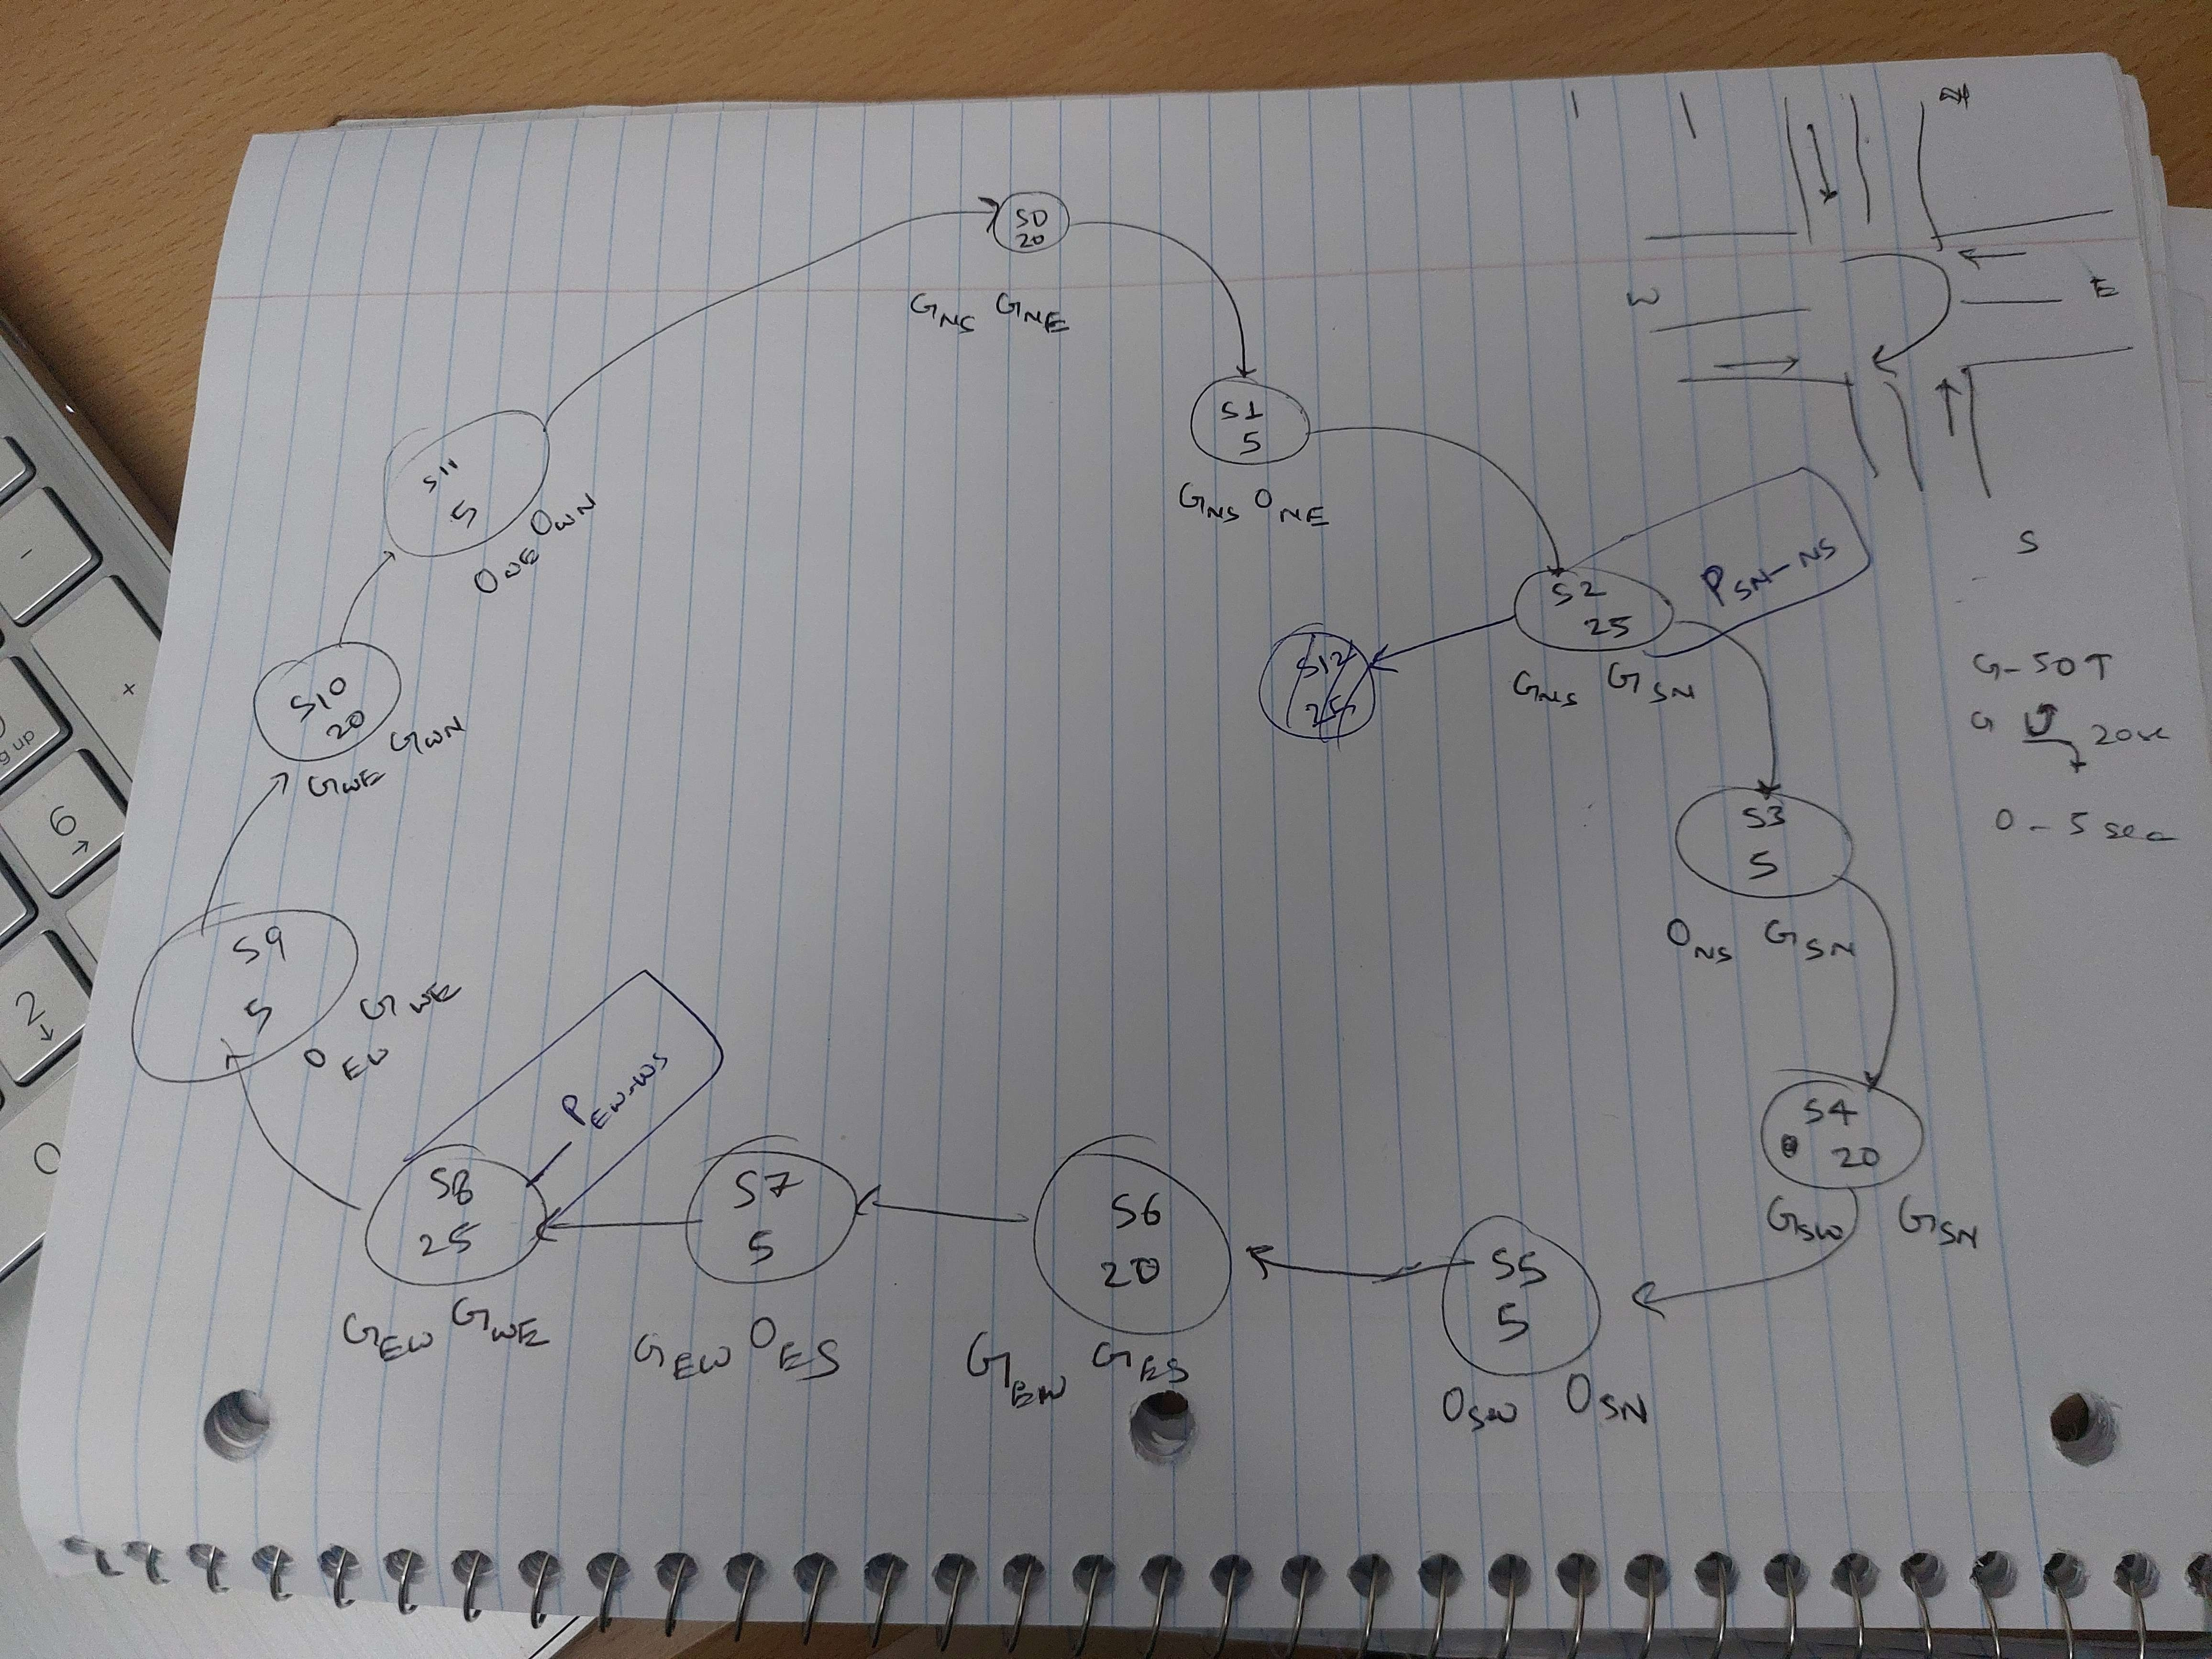 S0
20
GNS GNE
S1
5
GNS ONE
S2
25
GNS GSN
PSN-NS
S12
25
S3
5
ONS GSN
S4
20
GSW GSN
S5
5
OSW OSN
S6
20
GEW GES
S7
5
GEW OES
S8
25
GEW GWE
PEW-WS
S9
5
OEW GWE
S10
20
GWE GWN
S11
5
OWE OWN
W
E
S
G-50T
G 20sec
O-5 sec
-
+
6
2
0
g up